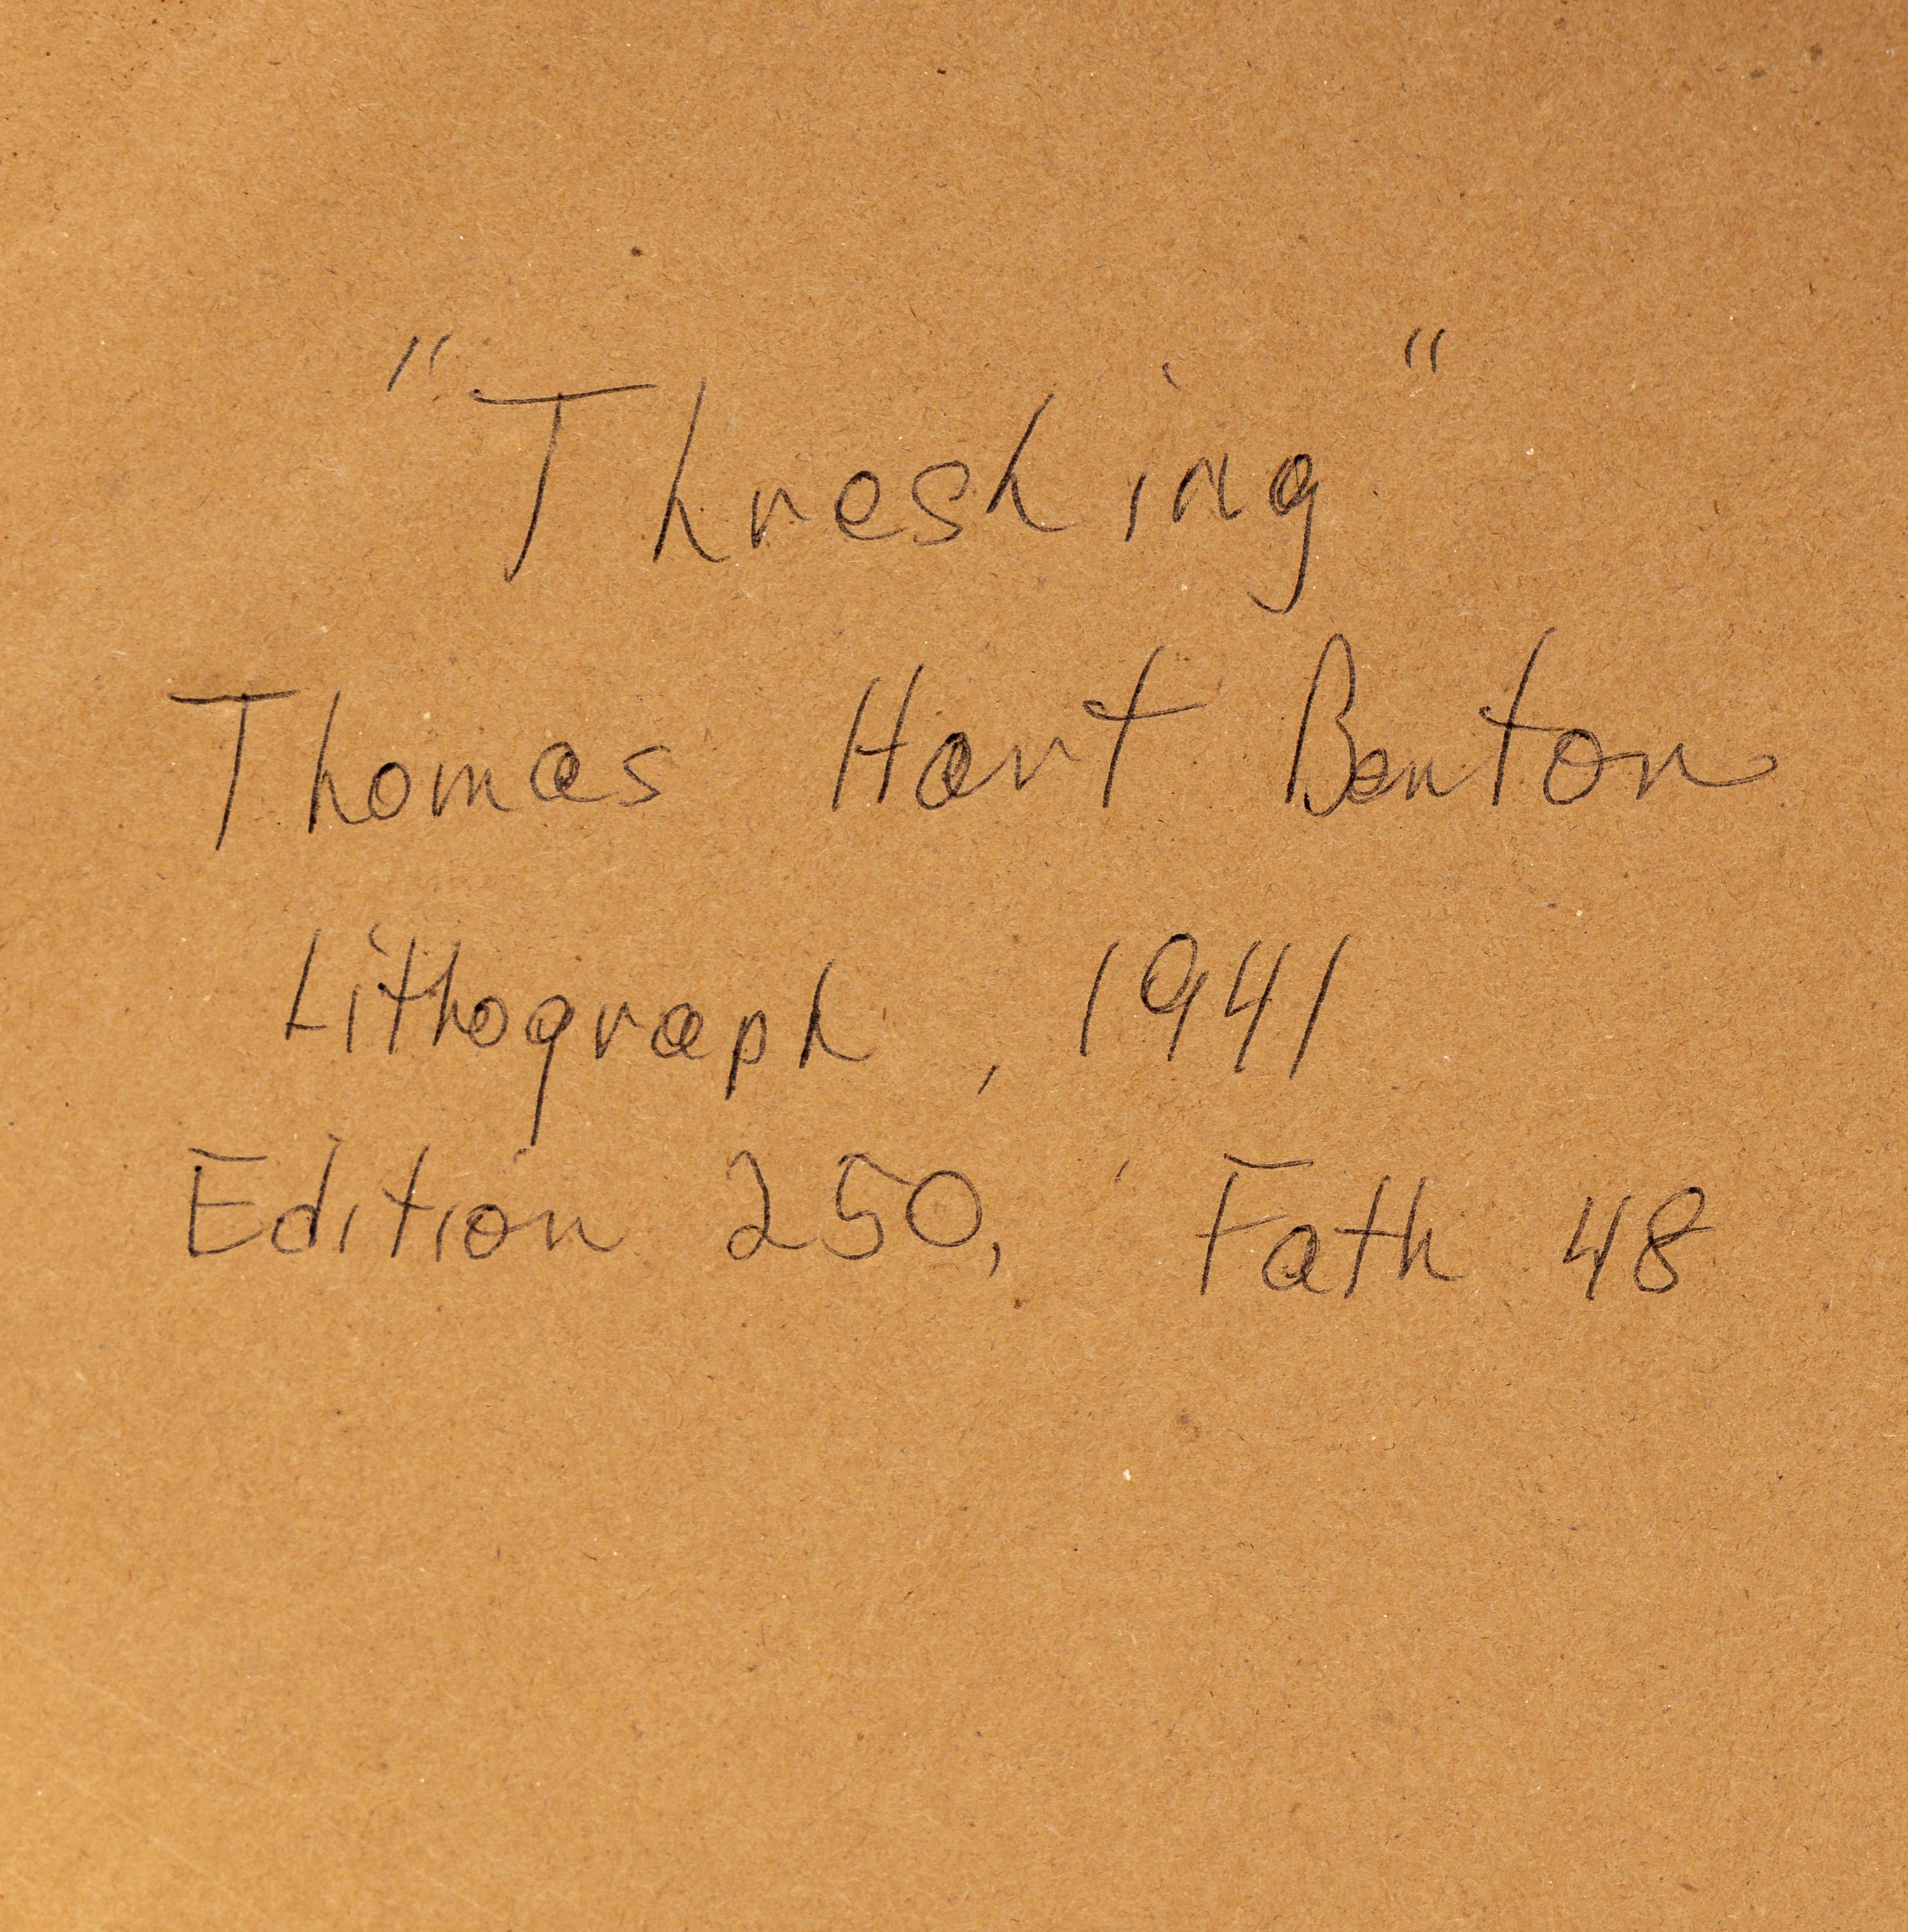 "Threshing"
Thomas Hart Benton
Lithograph, 1941
Edition 250, Fath 48